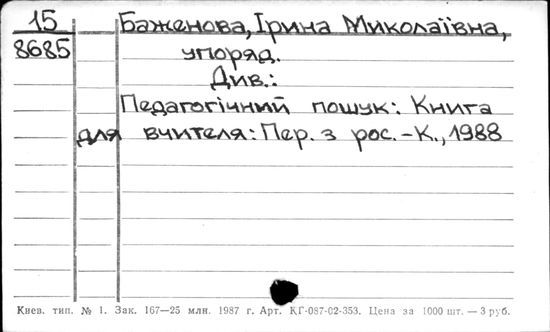 15 Баженова, Ірина Миколаївна,
8685 упоряд.
Див.:
Педагогічний пошук: Книга
для вчителя: Пер. з рос. -К., 1988
Киев. тип. № 1. Зак. 167—25 млн. 1987 г. Арт. КГ-087-02-353. Цена за 1000 шт. — 3 руб.